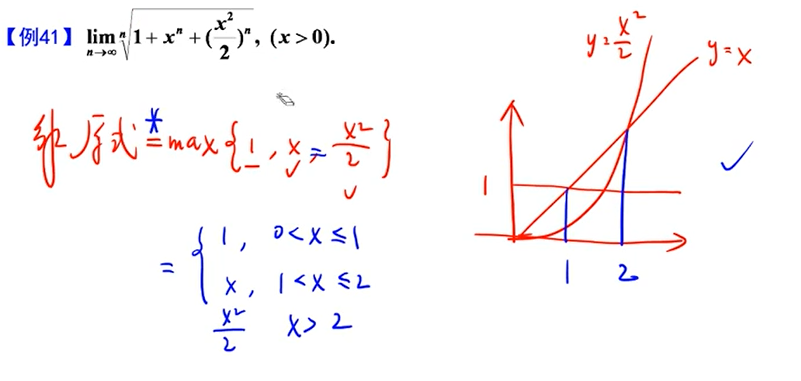 【例41】 lim_{n→∞} ⁿ√(1 + xⁿ + (x²/2)ⁿ), (x > 0).
解 原式 *= max{1, x, = x²/2}
= { 1, 0 < x ≤ 1
x, 1 < x ≤ 2
x²/2 x > 2
y = x²/2
y = x
1
1 2